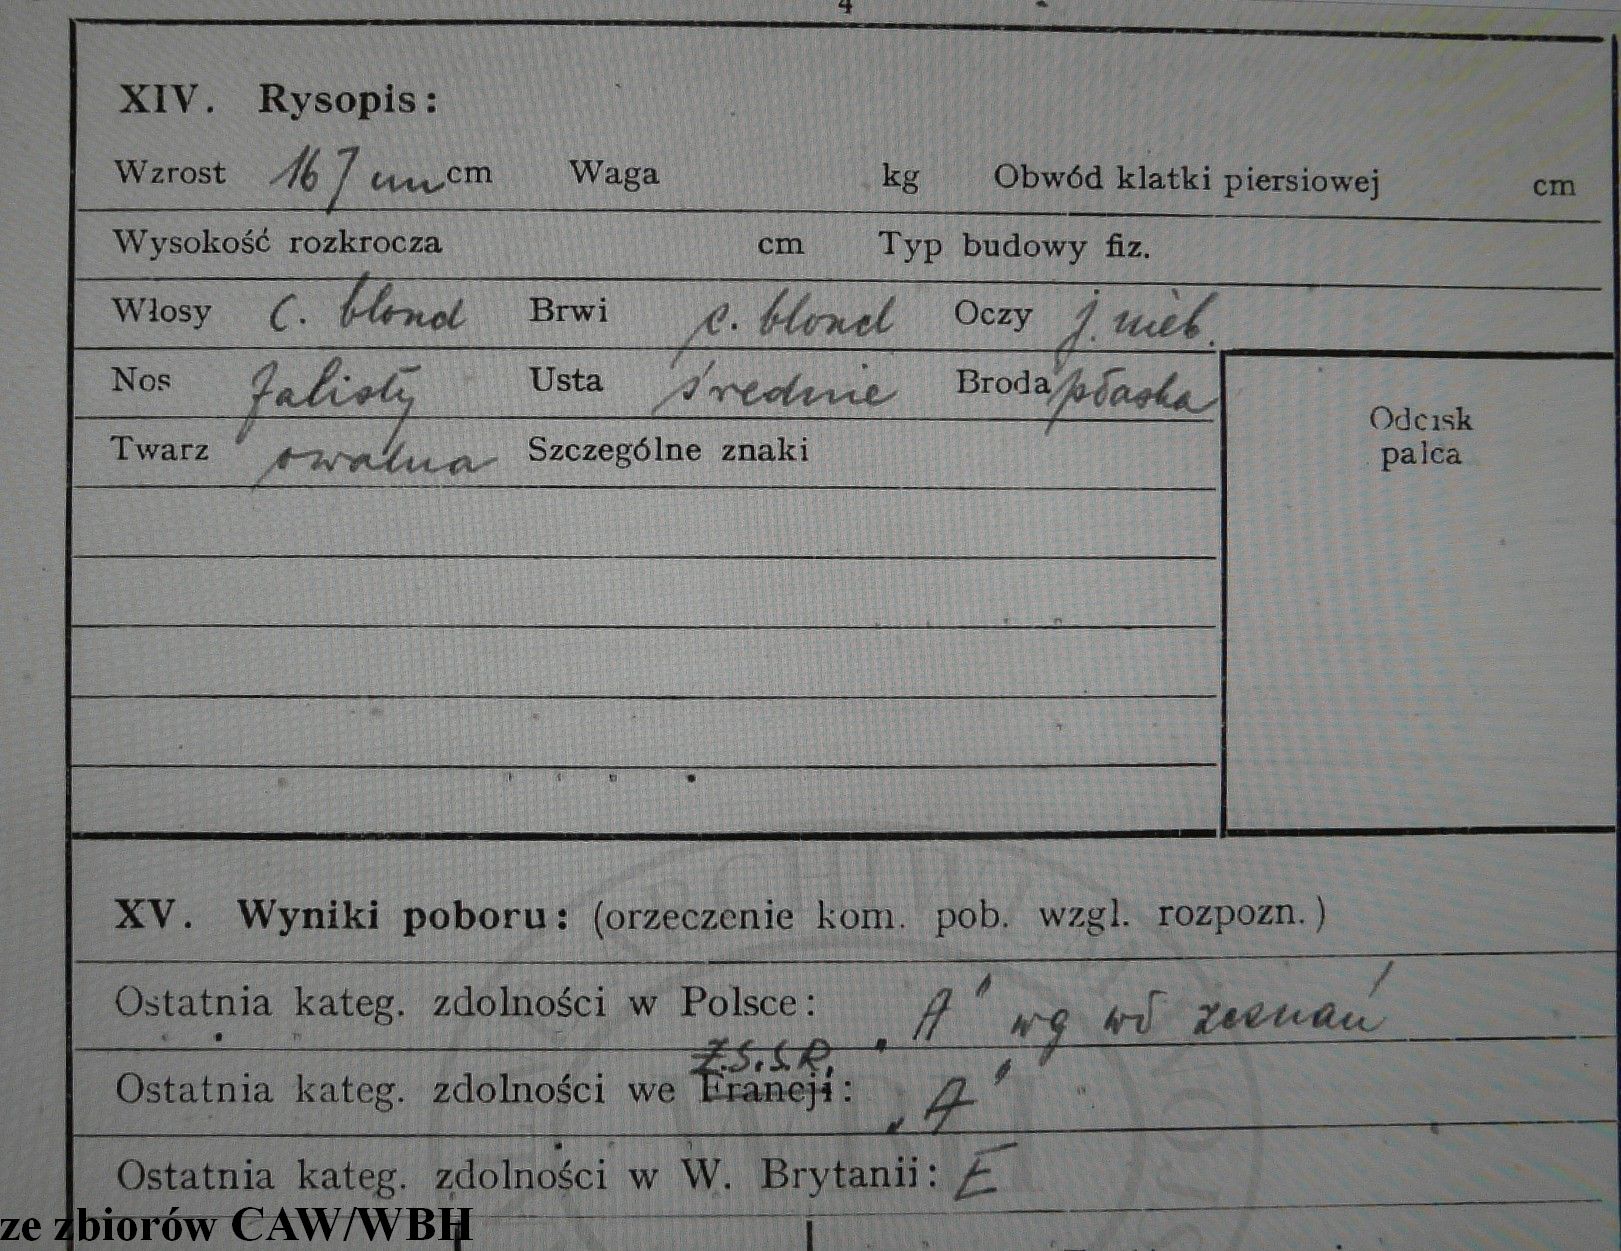 4
XIV. Rysopis:
Wzrost 167 cm Waga kg Obwód klatki piersiowej cm
Wysokość rozkrocza cm Typ budowy fiz.
Włosy c. blond Brwi c. blond Oczy j. nieb.
Nos falisty Usta średnie Broda płaska
Twarz owalna Szczególne znaki
Odcisk
palca
XV. Wyniki poboru: (orzeczenie kom. pob. wzgl. rozpozn.)
Ostatnia kateg. zdolności w Polsce: „A" wg wł zeznań
Z.S.S.R.
Ostatnia kateg. zdolności we Francji: „A"
Ostatnia kateg. zdolności w W. Brytanii: E
ze zbiorów CAW/WBH